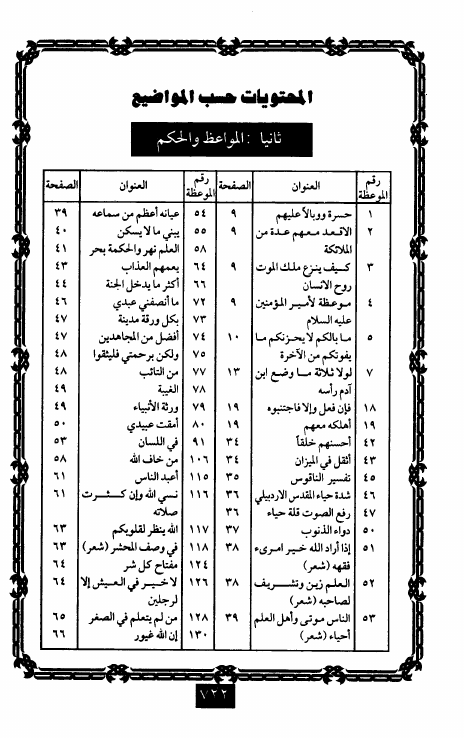 المحتويات حسب المواضيع
ثانيا : المواعظ والحكم
رقم الموعظة العنوان الصفحة
١ حسرة ووبالاً عليهم ٩
٢ الاقعد معهم عدة من ٩
الملائكة
٣ كيف ينزع ملك الموت ٩
روح الانسان
٤ موعظة لأمير المؤمنين ٩
عليه السلام
٥ ما بالكم لا يحزنكم ما ١٠
يفوتكم من الآخرة
٧ لولا ثلاثة ما وضع ابن ١٣
آدم رأسه
١٨ فإن فعل وإلا فاجتنبوه ١٩
١٩ أهلكه معهم ١٩
٤٢ أحسنهم خلقاً ٣٤
٤٣ أثقل في الميزان ٣٤
٤٥ تفسير الناقوس ٣٥
٤٦ شدة حياء المقدس الاردبيلي ٣٦
٤٧ رفع الصوت قلة حياء ٣٦
٥٠ دواء الذنوب ٣٧
٥١ إذا أراد الله خير امرىء ٣٨
فقهه (شعر)
٥٢ العلم زين وتشريف ٣٨
لصاحبه (شعر)
٥٣ الناس موتى وأهل العلم ٣٩
أحياء (شعر)
رقم الموعظة العنوان الصفحة
٥٤ عيانه أعظم من سماعه ٣٩
٥٥ يبني ما لا يسكن ٤٠
٥٨ العلم نهر والحكمة بحر ٤١
٦٤ يعمهم العذاب ٤٣
٦٦ أكثر ما يدخل الجنة ٤٤
٧٢ ما أنصفني عبدي ٤٦
٧٣ بكل ورقة مدينة ٤٧
٧٤ أفضل من المجاهدين ٤٧
٧٥ ولكن برحمتي فليثقوا ٤٨
٧٧ من التائب ٤٨
٧٨ الغيبة ٤٩
٧٩ ورثة الأنبياء ٤٩
٨٠ أمقت عبيدي ٥٠
٩١ في اللسان ٥٣
١٠٦ من خاف الله ٥٨
١١٥ أعبد الناس ٦١
١١٦ نسي الله وإن كثرت ٦١
صلاته
١١٧ الله ينظر لقلوبكم ٦٣
١١٨ في وصف المحشر (شعر) ٦٣
١٢٤ مفتاح كل شر ٦٤
١٢٦ لا خير في العيش إلا ٦٤
لرجلين
١٢٨ من لم يتعلم في الصغر ٦٥
١٣٠ إن الله غيور ٦٦
٧٢٢